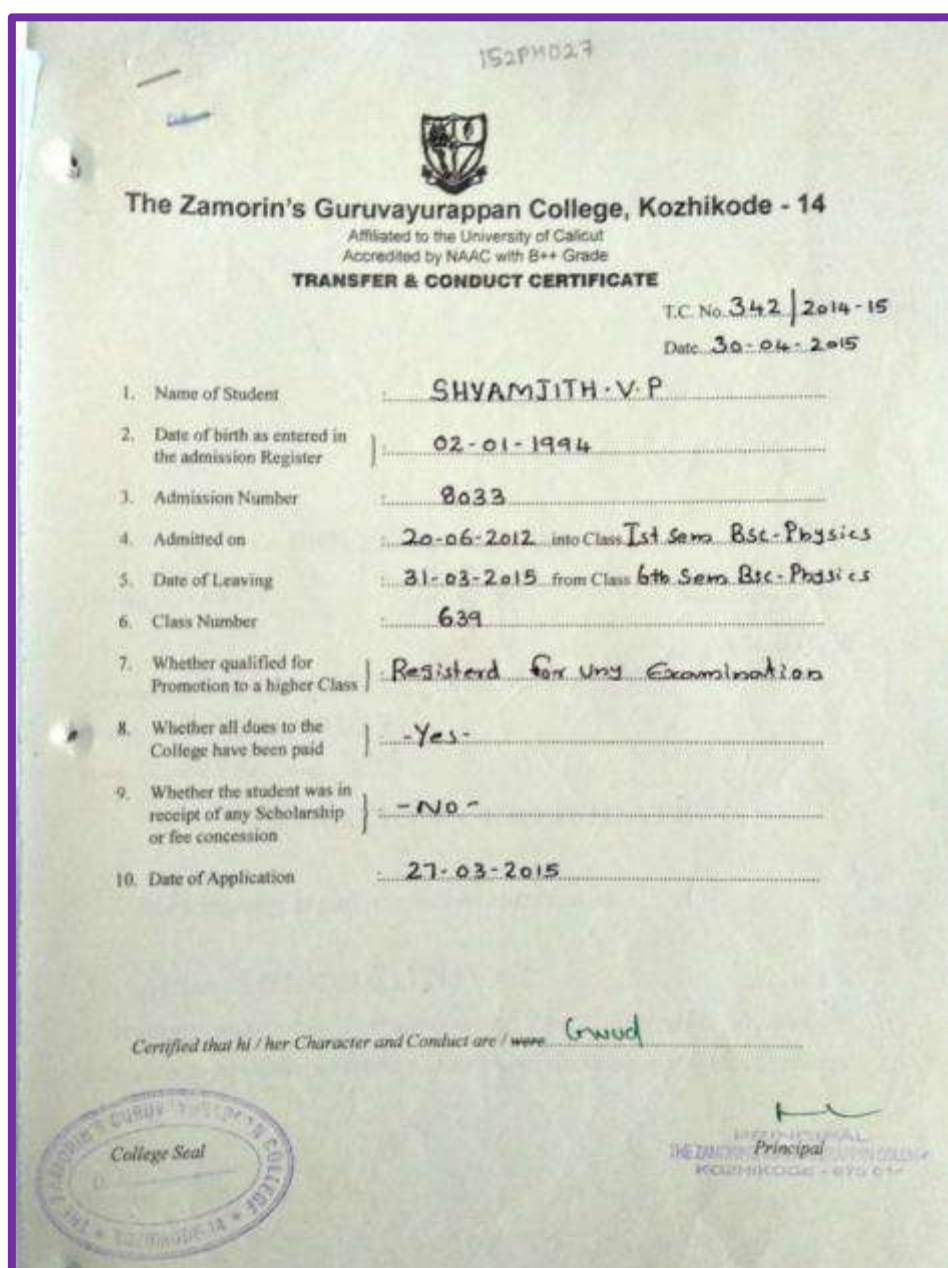 152PH027
The Zamorin's Guruvayurappan College, Kozhikode - 14
Affiliated to the University of Calicut
Accredited by NAAC with B++ Grade
TRANSFER & CONDUCT CERTIFICATE
T.C. No. 342 | 2014-15
Date 30-04-2015
1. Name of Student : SHYAMJITH.V.P
2. Date of birth as entered in
the admission Register } : 02-01-1994
3. Admission Number : 8033
4. Admitted on : 20-06-2012 into Class Ist Sem Bsc-Physics
5. Date of Leaving : 31-03-2015 from Class 6th Sem Bsc-Physics
6. Class Number : 639
7. Whether qualified for
Promotion to a higher Class } : Registerd for Uny Examination
8. Whether all dues to the
College have been paid } : -Yes-
9. Whether the student was in
receipt of any Scholarship
or fee concession } : -NO-
10. Date of Application : 27-03-2015
Certified that hi / her Character and Conduct are / were
College Seal
THE ZAMORIN'S GURUVAYURAPPAN COLLEGE
KOZHIKODE-14
PRINCIPAL
Principal
THE ZAMORIN'S GURUVAYURAPPAN COLLEGE